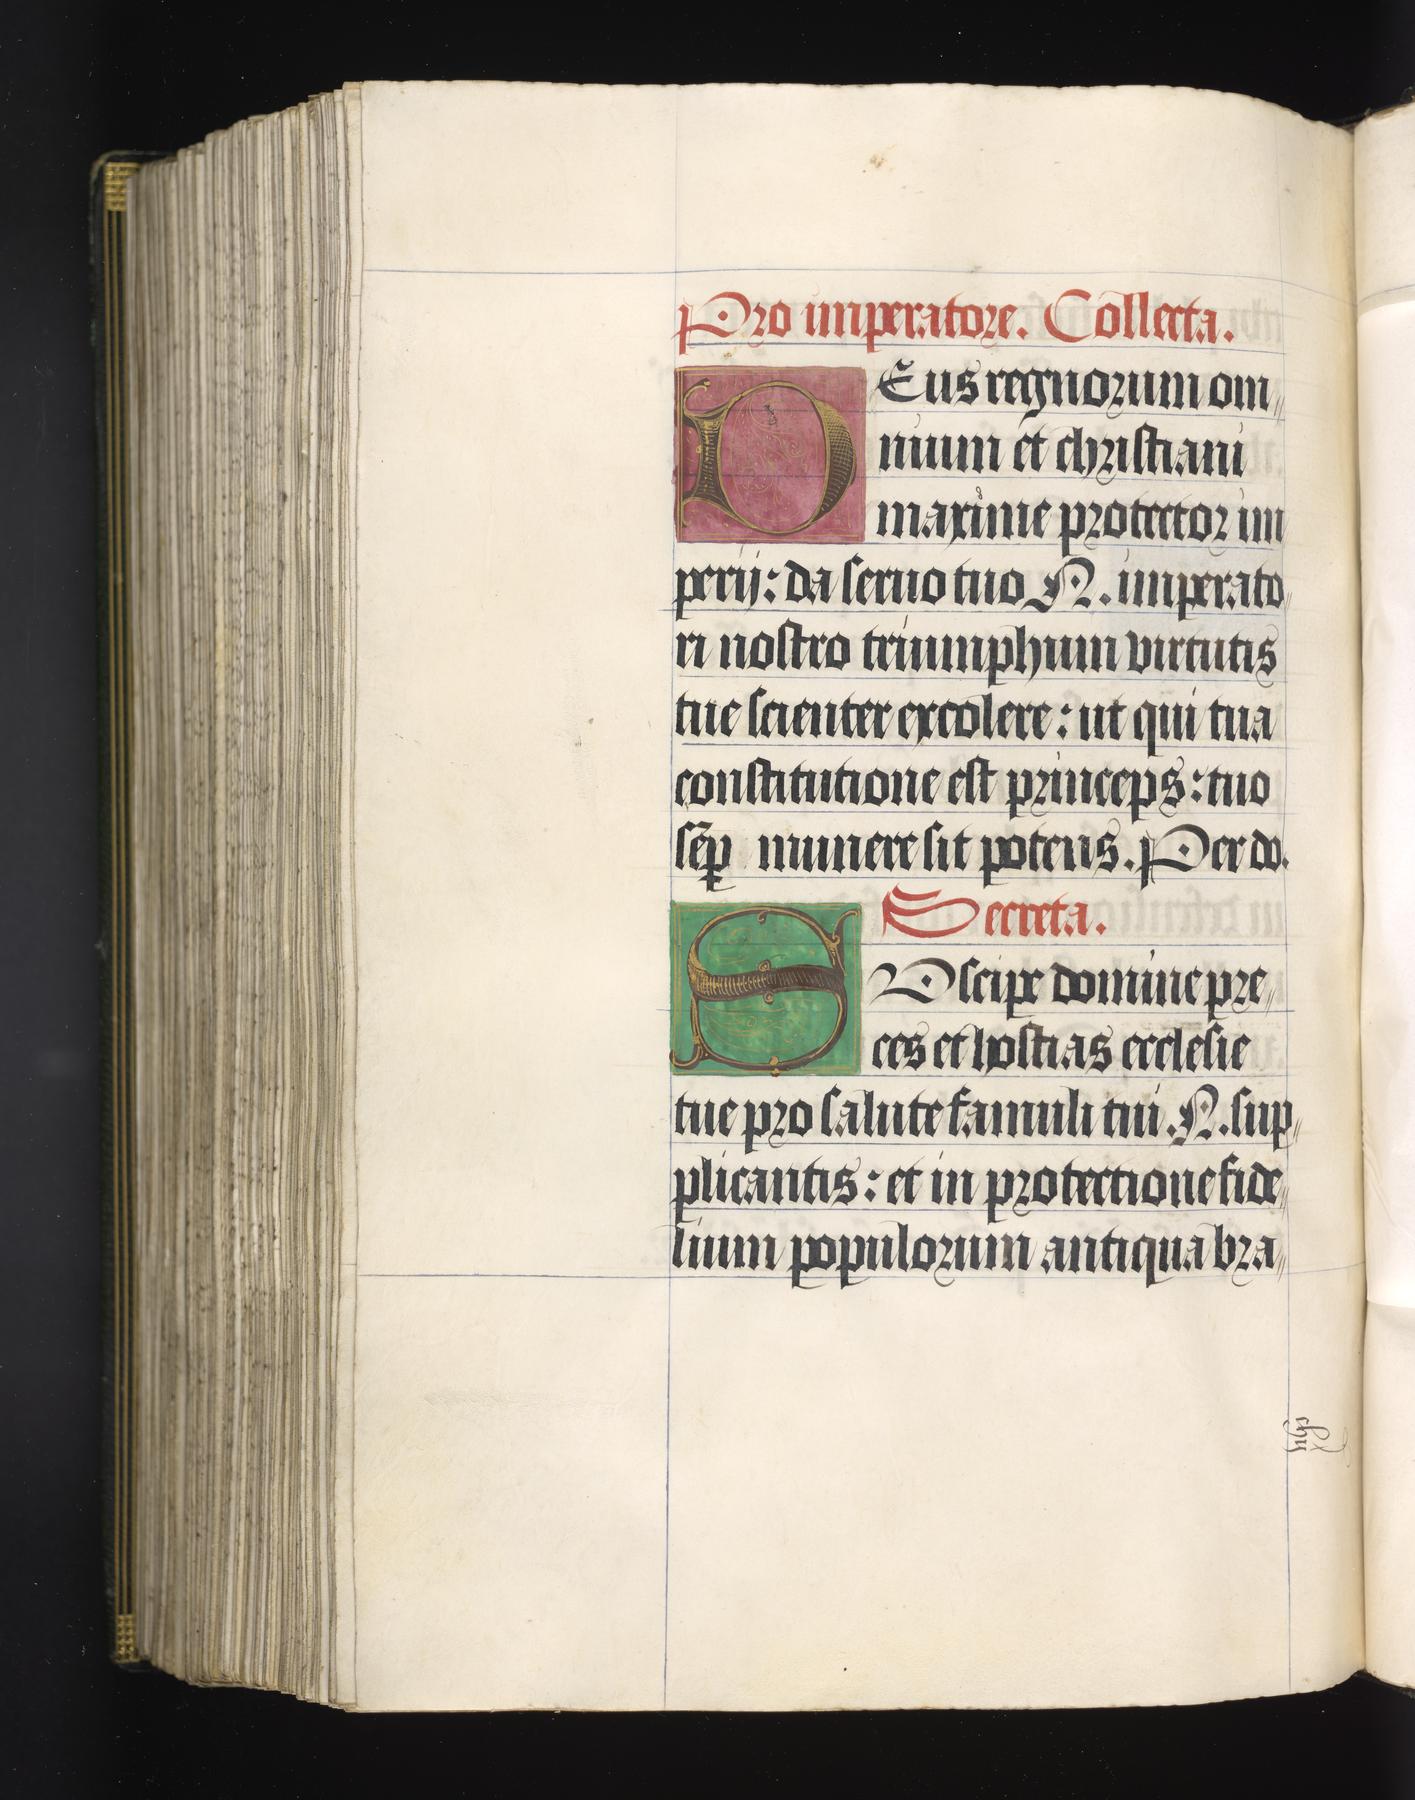 Pro imperatore. Collecta.
DEus regnorum om
nium et christiani
maxime protector im
perij: da seruo tuo .N. imperato
ri nostro triumphum virtutis
tue scienter excolere: ut qui tua
constitutione est princeps: tuo
sēꝑ munere sit potens. Per do.
Secreta.
SUscipe domine pre
ces et hostias ecclesie
tue pro salute famuli tui .N. sup
plicantis: et in protectione fide
lium populorum antiqua bra